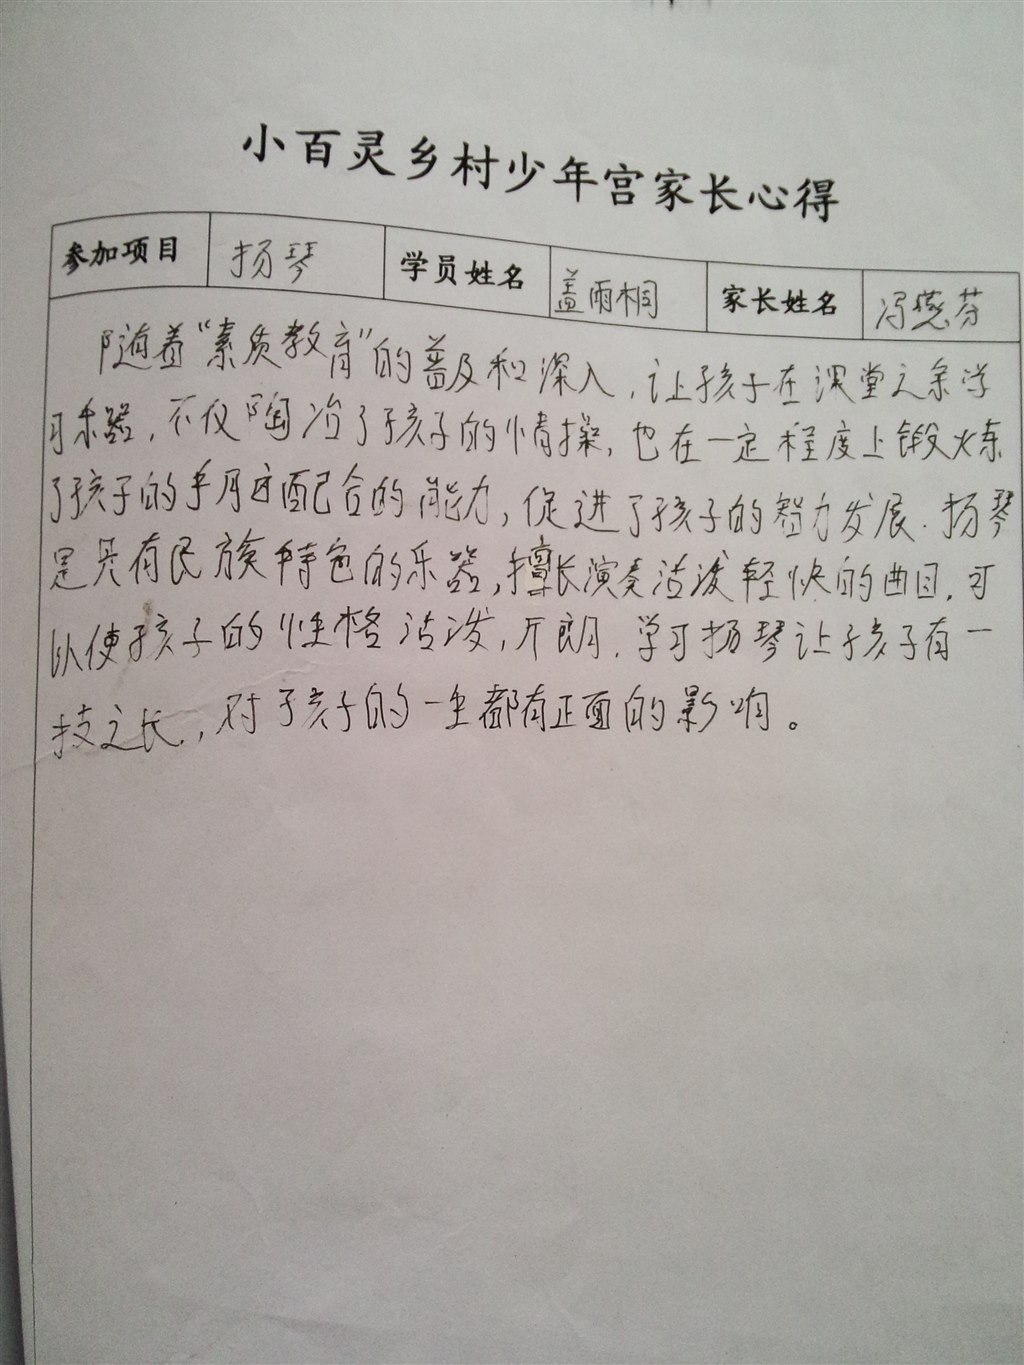 小百灵乡村少年宫家长心得
参加项目 扬琴 学员姓名 盖雨桐 家长姓名 冯燕芬
随着“素质教育”的普及和深入，让孩子在课堂之余学
习乐器，不仅陶冶了孩子的情操，也在一定程度上锻炼
了孩子的手月凶配合的能力，促进了孩子的智力发展．扬琴
是具有民族特色的乐器，擅长演奏活泼轻快的曲目．可
以使孩子的性格活泼，开朗．学习扬琴让孩子有一
技之长，对孩子的一生都有正面的影响。